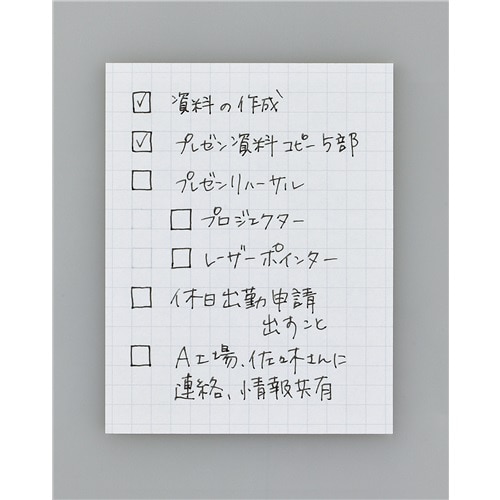 ☑ 資料の作成
☑ プレゼン資料コピー5部
☐ プレゼンリハーサル
☐ プロジェクター
☐ レーザーポインター
☐ 休日出勤申請
出すこと
☐ A工場、佐々木さんに
連絡、情報共有